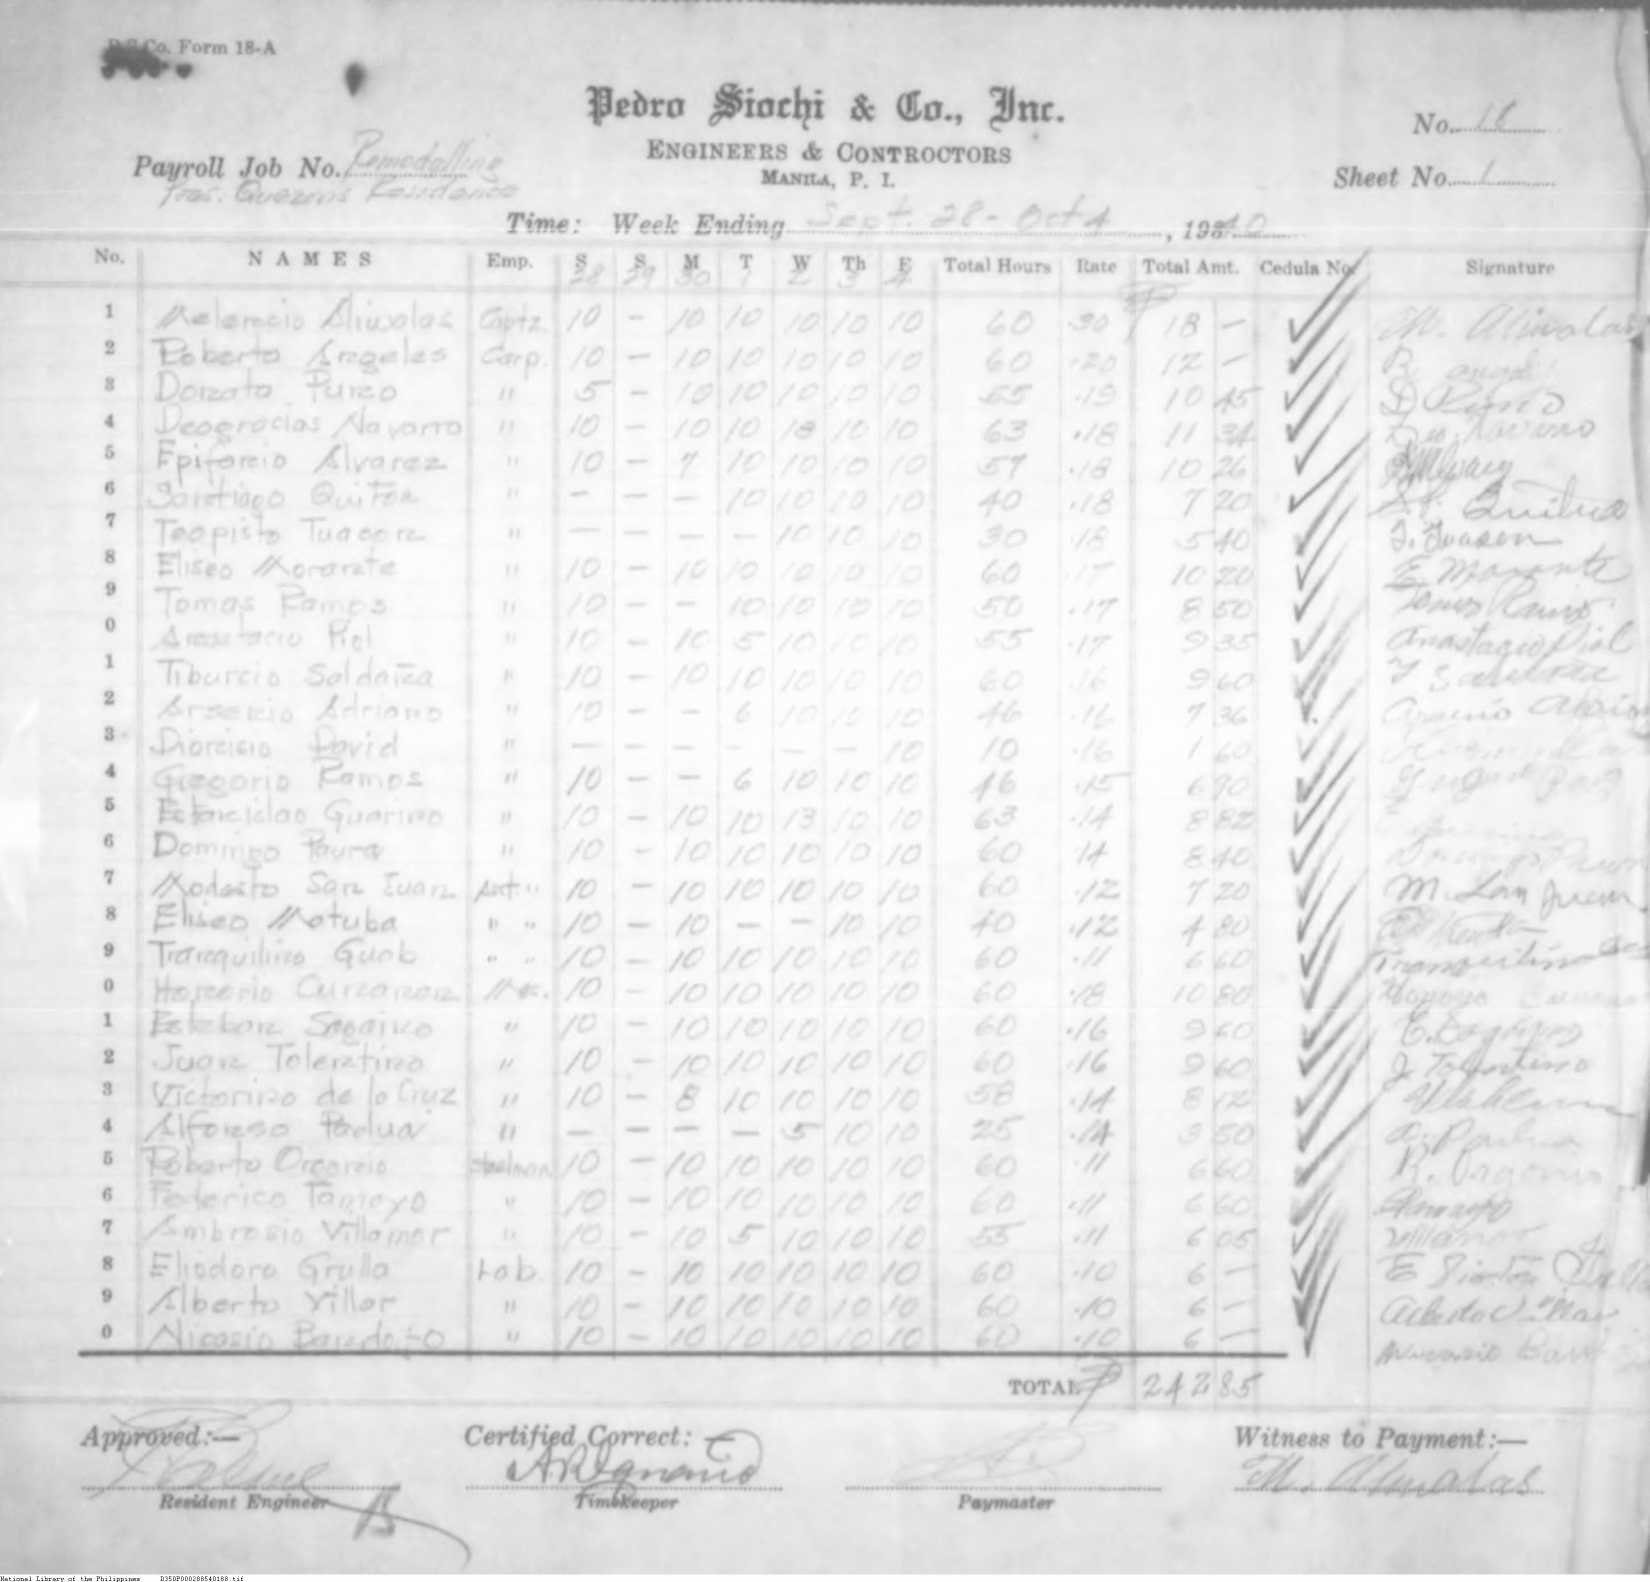 P S Co. Form 18-A
Pedro Siochi & Co., Inc.
ENGINEERS & CONTROCTORS
MANILA, P. I.
No. 18
Sheet No. 1
Payroll Job No. Remodelling
Pres. Quezon's Residence
Time: Week Ending Sept. 28 - Oct 4, 1940
No. NAMES Emp. S S M T W Th F Total Hours Rate Total Amt. Cedula No. Signature
28 29 30 1 2 3 4
1 Melencio Aliwalas Captz. 10 - 10 10 10 10 10 60 .30 ₱ 18 - M. Aliwalas
2 Roberto Angeles Carp. 10 - 10 10 10 10 10 60 .20 12 -
3 Donato Punzo " 5 - 10 10 10 10 10 55 .19 10 45
4 Deogracias Navarro " 10 - 10 10 13 10 10 63 .18 11 34
5 Epifancio Alvarez " 10 - 7 10 10 10 10 57 .18 10 26
6 Santiago " - - - 10 10 10 10 40 .18 7 20
7 Teopisto Tuason " - - - - 10 10 10 30 .18 5 40 T. Tuason
8 Eliseo Morante " 10 - 10 10 10 10 10 60 .17 10 20 E. Morante
9 Tomas Ramos " 10 - - 10 10 10 10 50 .17 8 50 Tomas Ramos
0 Anastacio Piol " 10 - 10 5 10 10 10 55 .17 9 35 Anastacio Piol
1 Tiburcio Saldaña " 10 - 10 10 10 10 10 60 .16 9 60 T Saldaña
2 Arsenio Adriano " 10 - - 6 10 10 10 46 .16 7 36 Arsenio
3 Dionicio David " - - - - - - 10 10 .16 1 60
4 Gregorio Ramos " 10 - - 6 10 10 10 46 .15 6 90
5 Estanislao Guarino " 10 - 10 10 13 10 10 63 .14 8 82
6 Domingo Paura " 10 - 10 10 10 10 10 60 .14 8 40
7 Modesto San Juan Ast " 10 - 10 10 10 10 10 60 .12 7 20 M. San Juan
8 Eliseo Matuba " " 10 - 10 - - 10 10 40 .12 4 80
9 Tranquilino Guab " " 10 - 10 10 10 10 10 60 .11 6 60 Tranquilino
0 Honorio Cunanan 10 - 10 10 10 10 10 60 .18 10 80
1 Esteban Sagaino " 10 - 10 10 10 10 10 60 .16 9 60
2 Juan Tolentino " 10 - 10 10 10 10 10 60 .16 9 60 J. Tolentino
3 Victorino de la Cruz " 10 - 8 10 10 10 10 58 .14 8 12
4 Alfonso Padua " - - - - 5 10 10 25 .14 3 50 A. Padua
5 Roberto Organcio Steelman 10 - 10 10 10 10 10 60 .11 6 60
6 Federico Tamayo " 10 - 10 10 10 10 10 60 .11 6 60
7 Ambrosio Villamar " 10 - 10 5 10 10 10 55 .11 6 05
8 Eliodoro Grulla Lab. 10 - 10 10 10 10 10 60 .10 6 -
9 Alberto Villar " 10 - 10 10 10 10 10 60 .10 6 -
0 Nicasio " 10 - 10 10 10 10 10 60 .10 6 -
TOTAL ₱ 242 85
Approved:— Certified Correct:— Witness to Payment:—
M. Aliwalas
Resident Engineer Timekeeper Paymaster
National Library of the Philippines D350P000288540188.tif